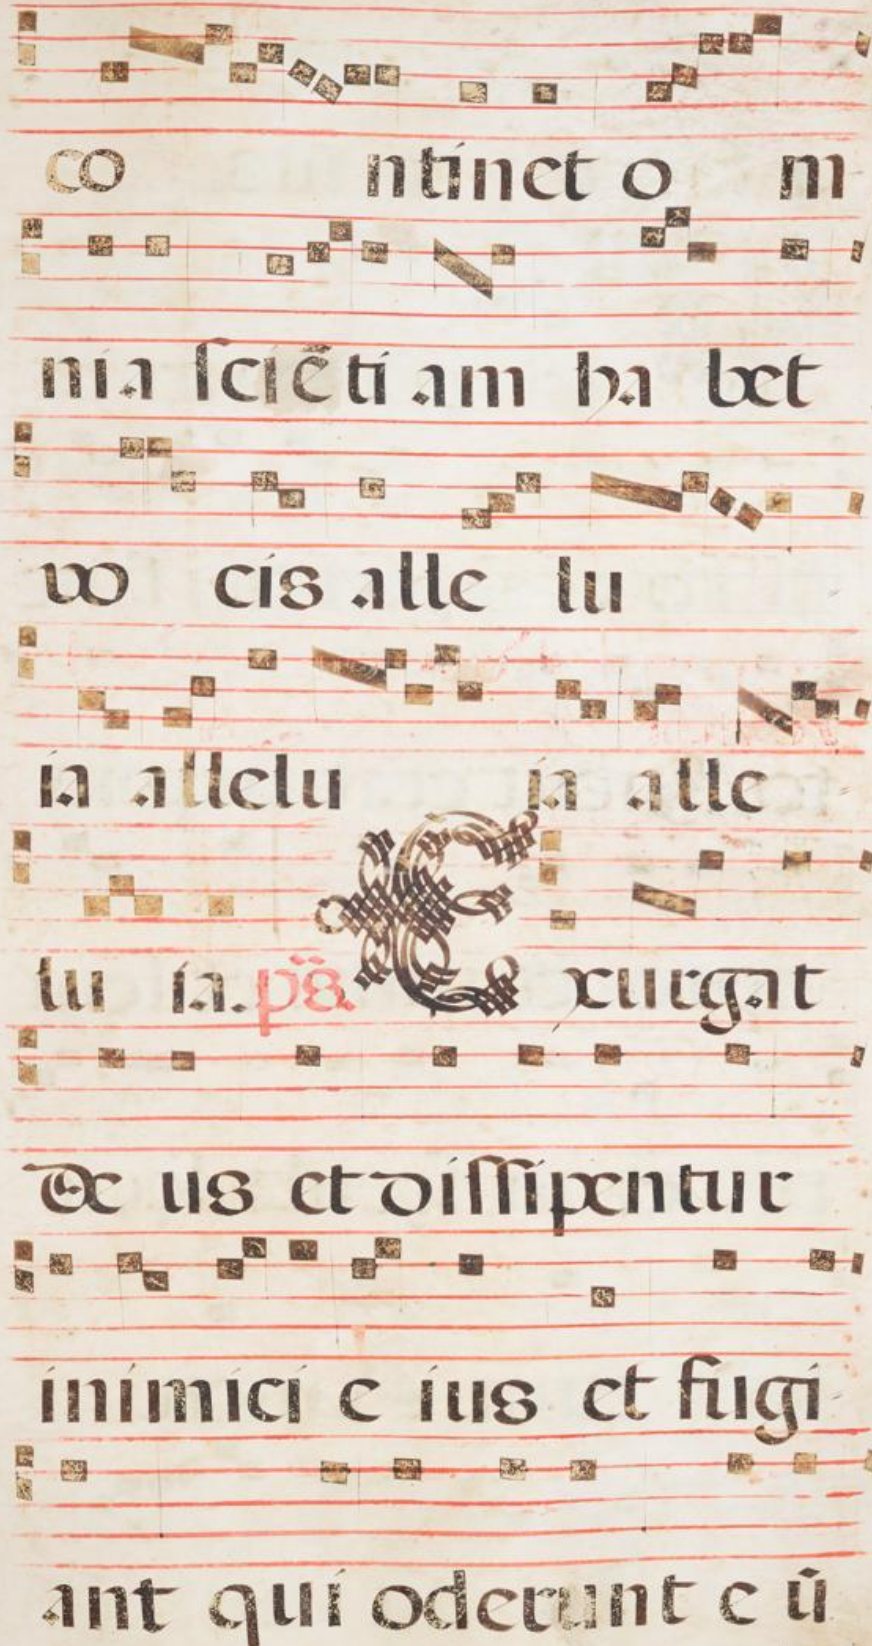 co ntinet o m
nia ſciẽti am ha bet
vo cis alle lu
ia allelu ia alle
lu ia. ps̈. Exurgat
De us et diſſipentur
inimici e ius et fugi
ant qui oderunt e ū